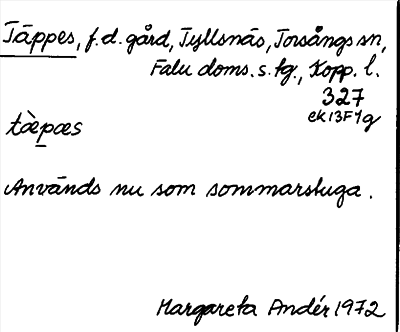 Täppes, f.d. gård, Tyllsnäs, Torsångs sn,
Falu doms. s. tg., Kopp. l.
327
ek 13F1g
tæ̀pæs
Används nu som sommarstuga.
Margareta Andér 1972